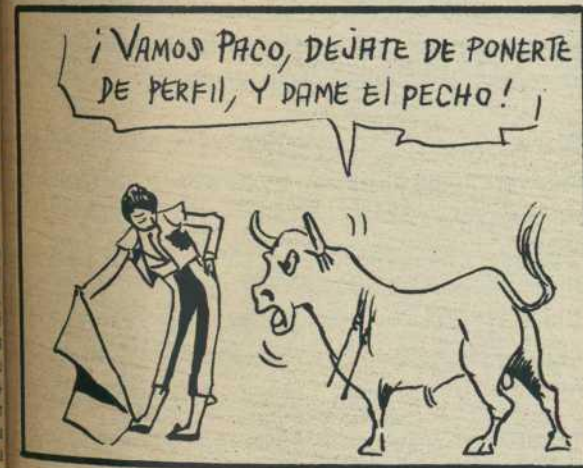 ¡VAMOS PACO, DEJATE DE PONERTE
DE PERFIL, Y DAME EL PECHO!